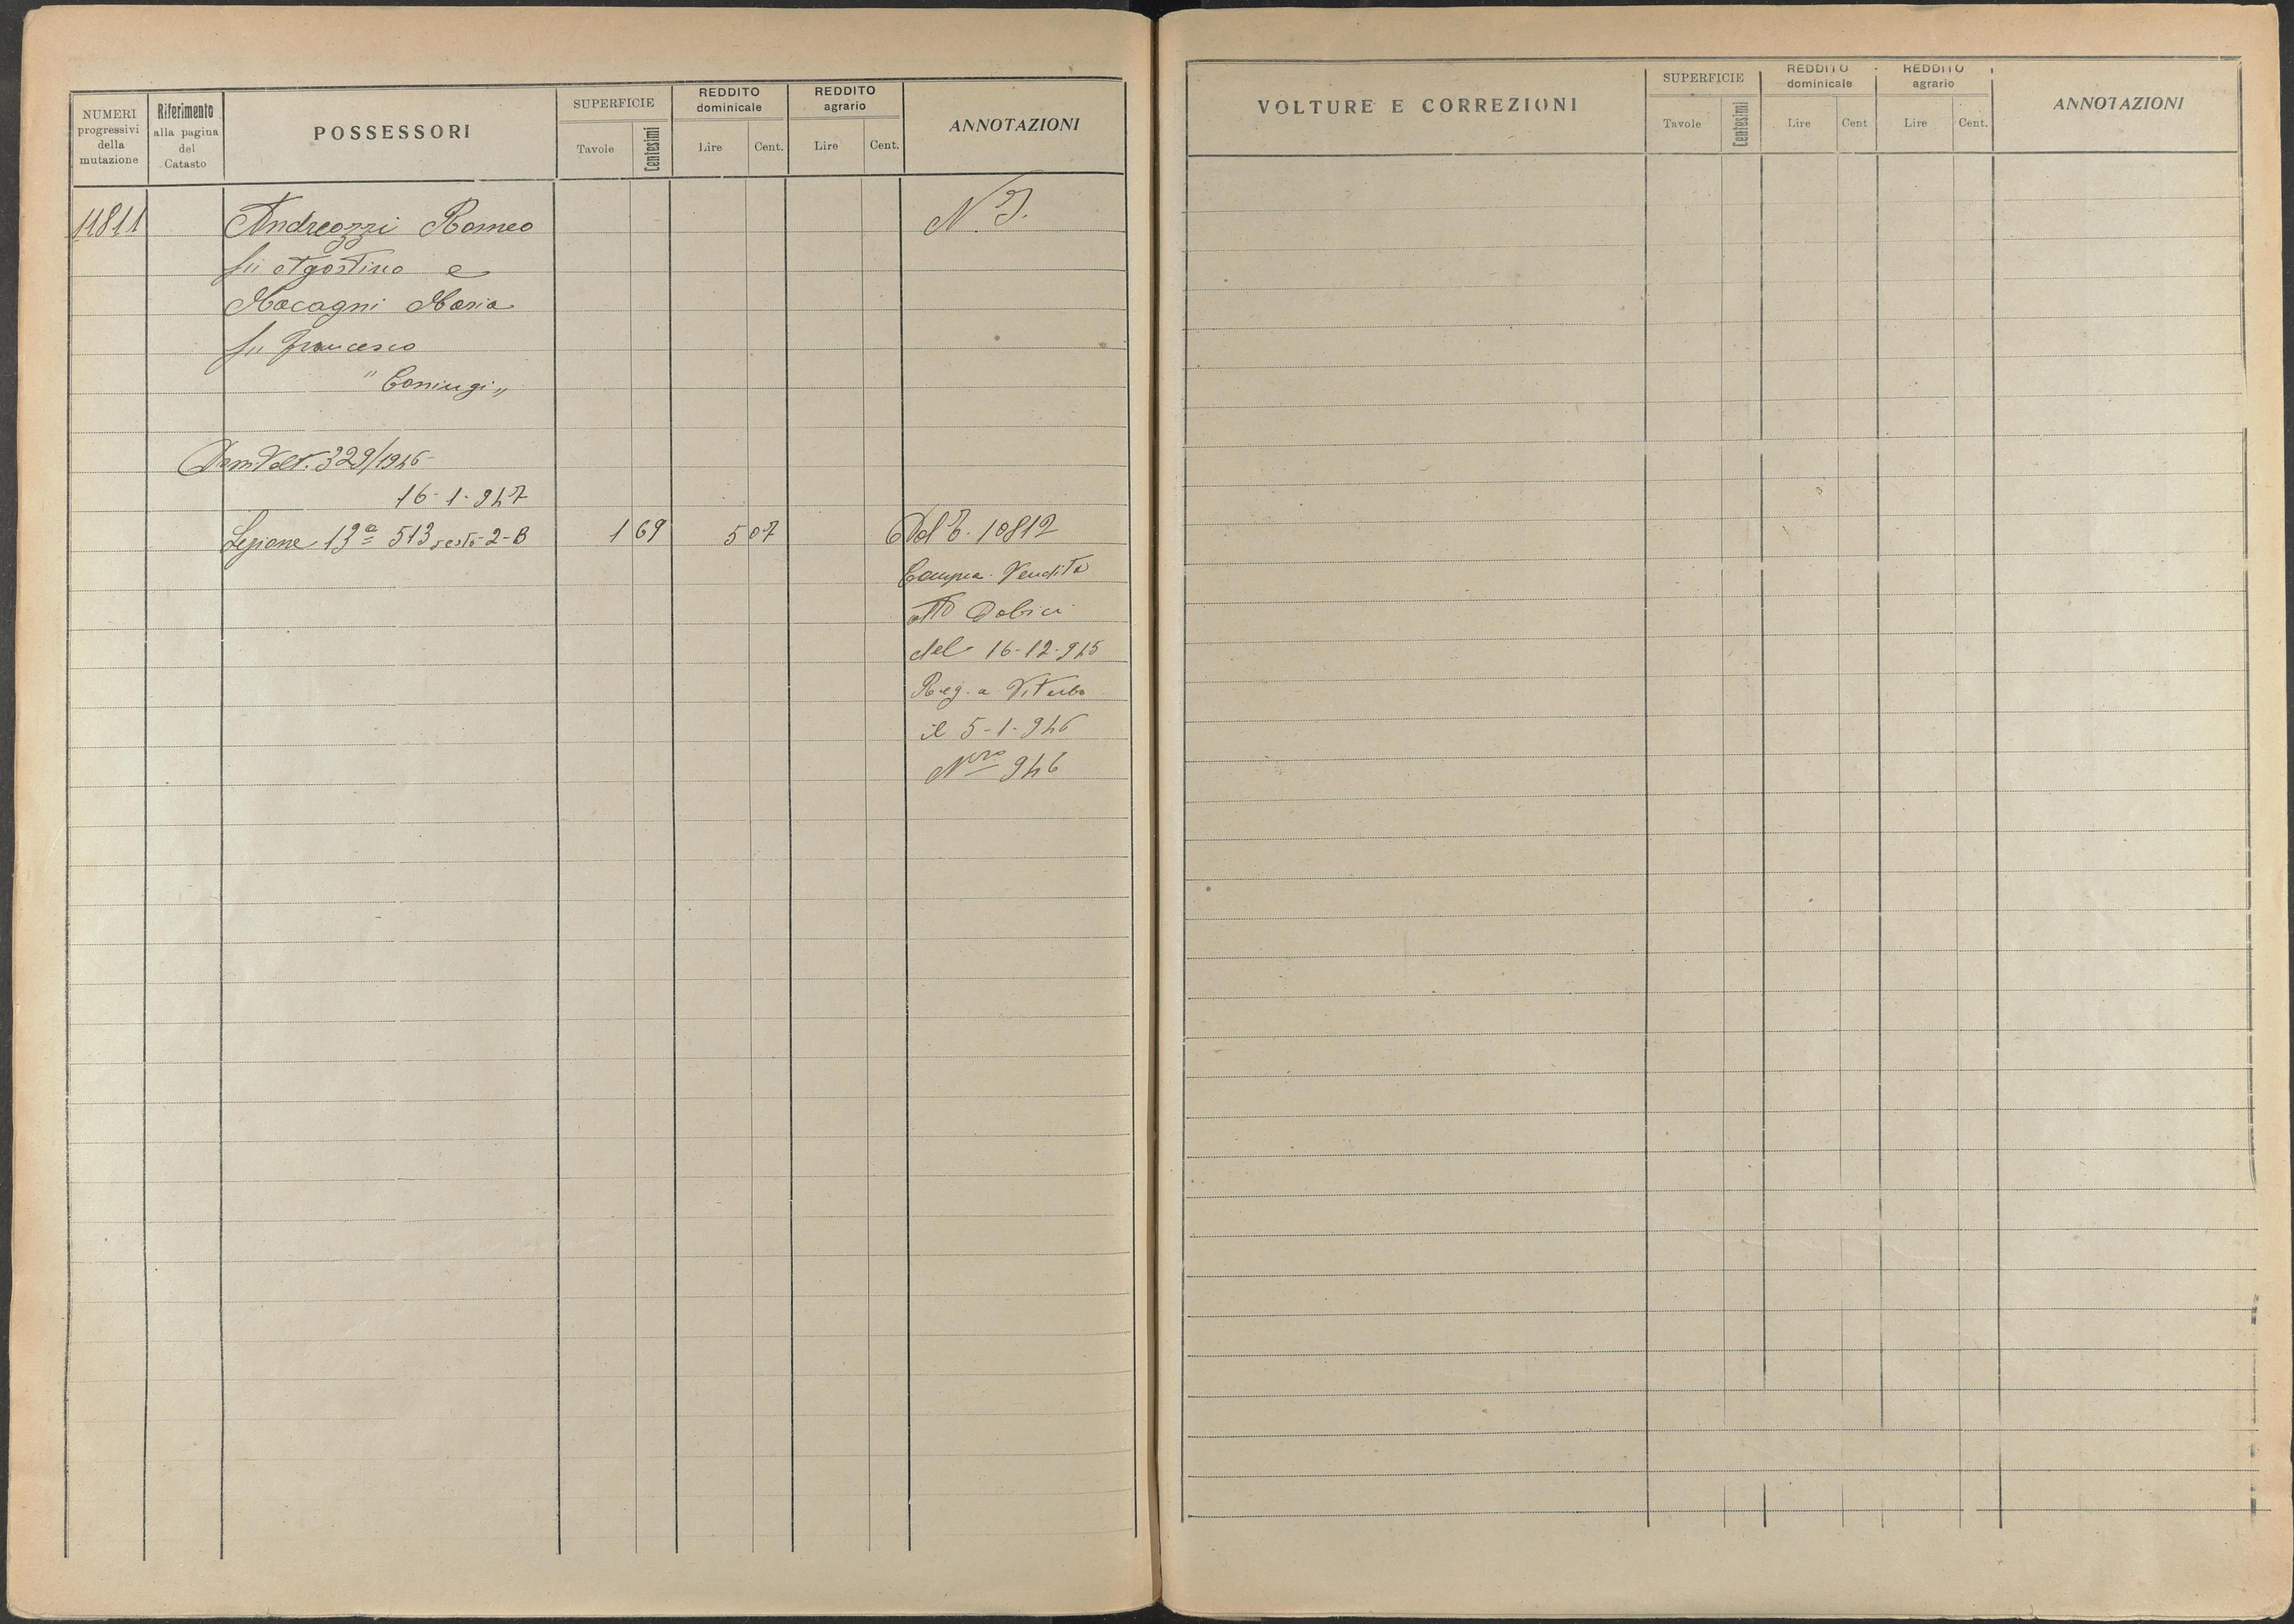 NUMERI progressivi della mutazione
Riferimento alla pagina del Catasto
POSSESSORI
SUPERFICIE
Tavole
Centesimi
REDDITO dominicale
Lire
Cent.
REDDITO agrario
Lire
Cent.
ANNOTAZIONI
11811
Andreozzi Romeo
fu Agostino e
Macagni Maria
fu Francesco
"Coniugi„
N.
Dom Volt. 329/1946
16-1-947
Sezione 13ª 513 sesto-2-B 1 69 5 07 Dal 10812
Compra-Vendita
atto
del 16-12-945
Reg. a Viterbo
il 5-1-946
Nro 946
VOLTURE E CORREZIONI
SUPERFICIE
Tavole
Centesimi
REDDITO dominicale
Lire
Cent
REDDITO agrario
Lire
Cent.
ANNOTAZIONI